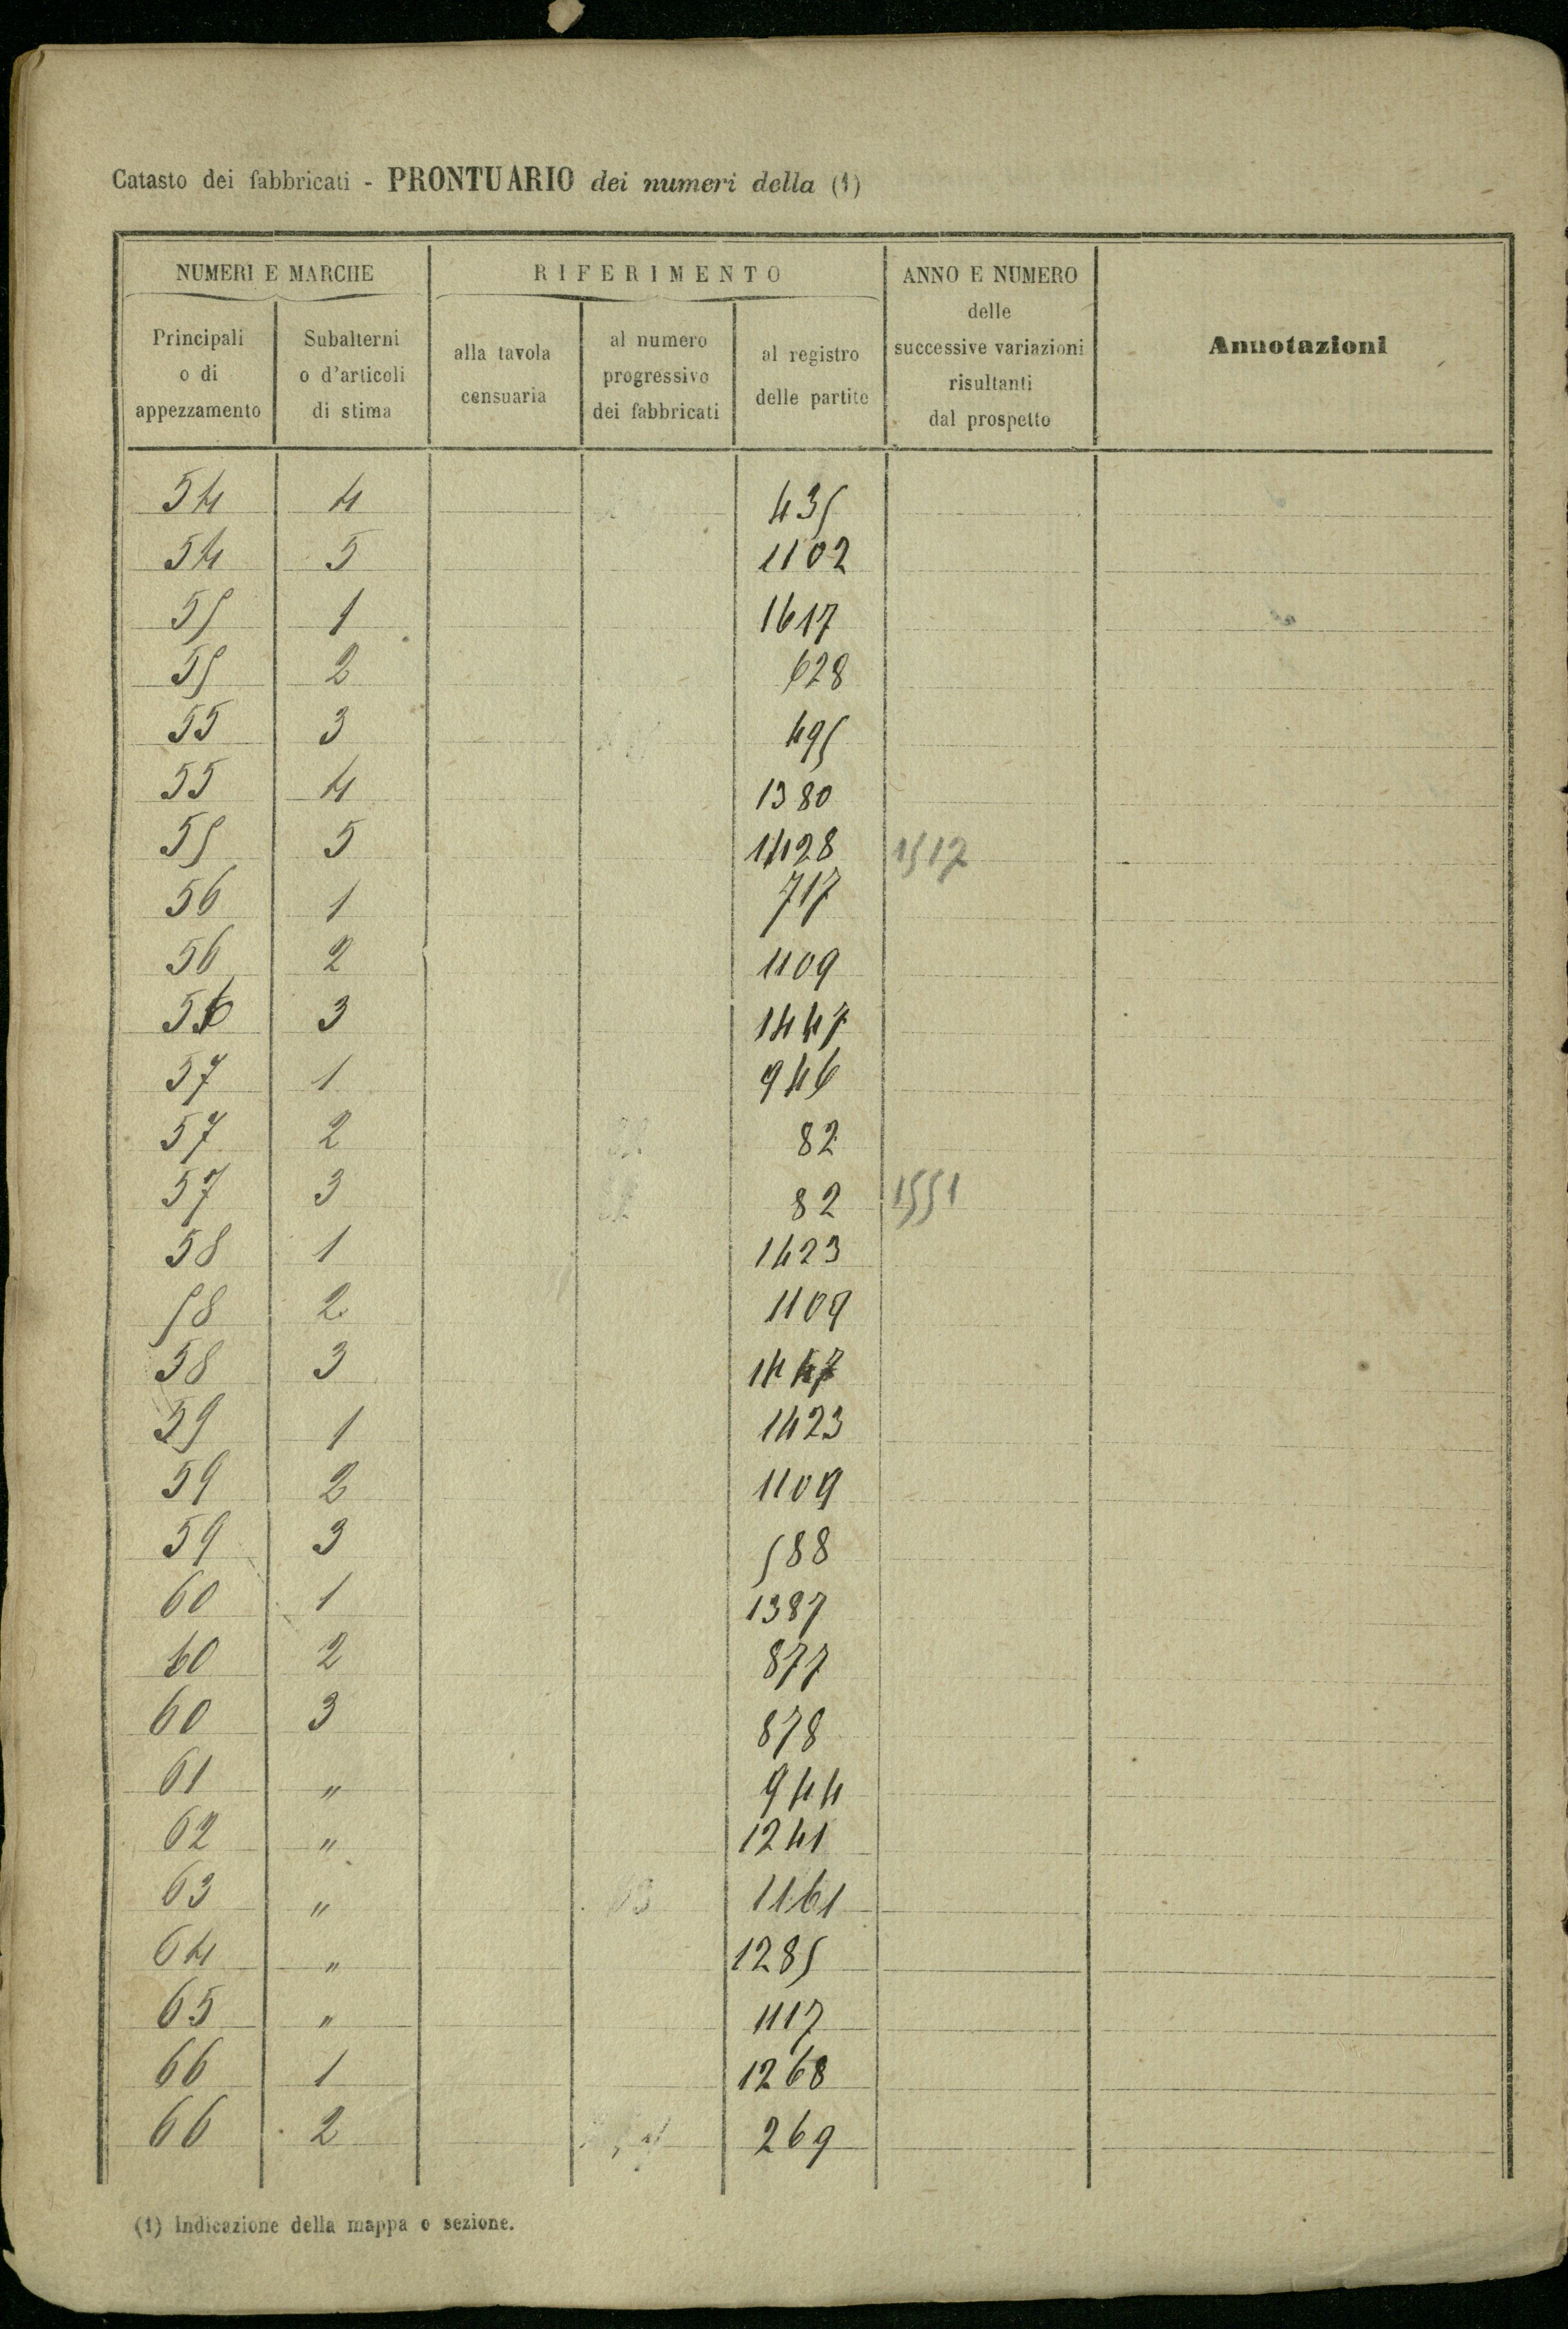 Catasto dei fabbricati - PRONTUARIO dei numeri della (1)
NUMERI E MARCHE RIFERIMENTO ANNO E NUMERO delle successive variazioni risultanti dal prospetto Annotazioni
Principali o di appezzamento Subalterni o d'articoli di stima alla tavola censuaria al numero progressivo dei fabbricati al registro delle partite
54 4 435
54 5 1102
55 1 1617
55 2 628
55 3 495
55 4 1380
55 5 1428 1517
56 1 717
56 2 1109
56 3 1447
57 1 946
57 2 82
57 3 82 1551
58 1 1423
58 2 1109
58 3 1447
59 1 1423
59 2 1109
59 3 588
60 1 1387
60 2 877
60 3 878
61 " 944
62 " 1241
63 " 63 1161
64 " 1285
65 " 1117
66 1 1268
66 2 269
(1) Indicazione della mappa o sezione.